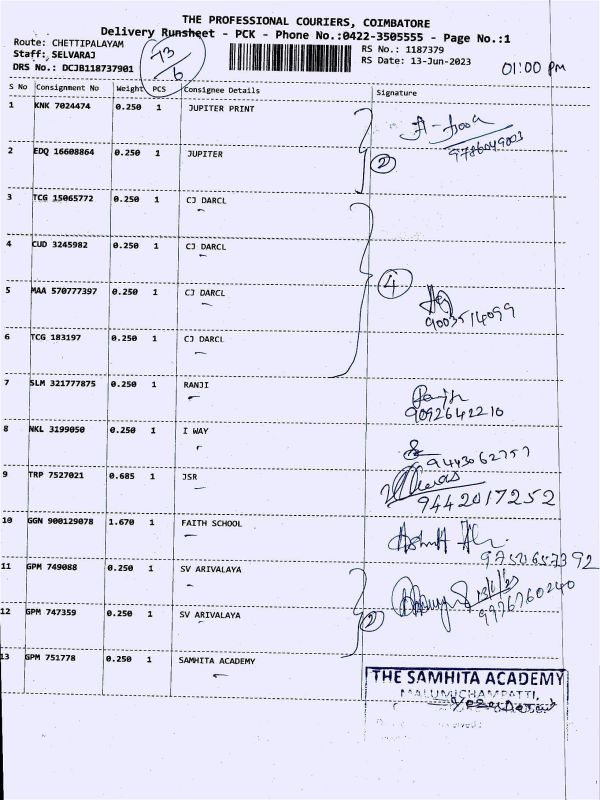 THE PROFESSIONAL COURIERS, COIMBATORE
Delivery Runsheet - PCK - Phone No.:0422-3505555 - Page No.:1
Route: CHETTIPALAYAM
Staff: SELVARAJ
DRS No.: DCJB118737901
73/6
RS No.: 1187379
RS Date: 13-Jun-2023
01:00 PM
S No Consignment No Weight PCS Consignee Details Signature
1 KNK 7024474 0.250 1 JUPITER PRINT
9786049003
2 EDQ 16608864 0.250 1 JUPITER
2
3 TCG 15065772 0.250 1 CJ DARCL
4 CUD 3245982 0.250 1 CJ DARCL
4
5 MAA 570777397 0.250 1 CJ DARCL
9003514099
6 TCG 183197 0.250 1 CJ DARCL
7 SLM 321777875 0.250 1 RANJI
9092642210
8 NKL 3199050 0.250 1 I WAY
9443062757
9 TRP 7527021 0.685 1 JSR
9442017252
10 GGN 900129078 1.670 1 FAITH SCHOOL
9750657392
11 GPM 749088 0.250 1 SV ARIVALAYA
13/6/23
9976760240
12 GPM 747359 0.250 1 SV ARIVALAYA
2
13 GPM 751778 0.250 1 SAMHITA ACADEMY
THE SAMHITA ACADEMY
MALUMICHAMPATTI,